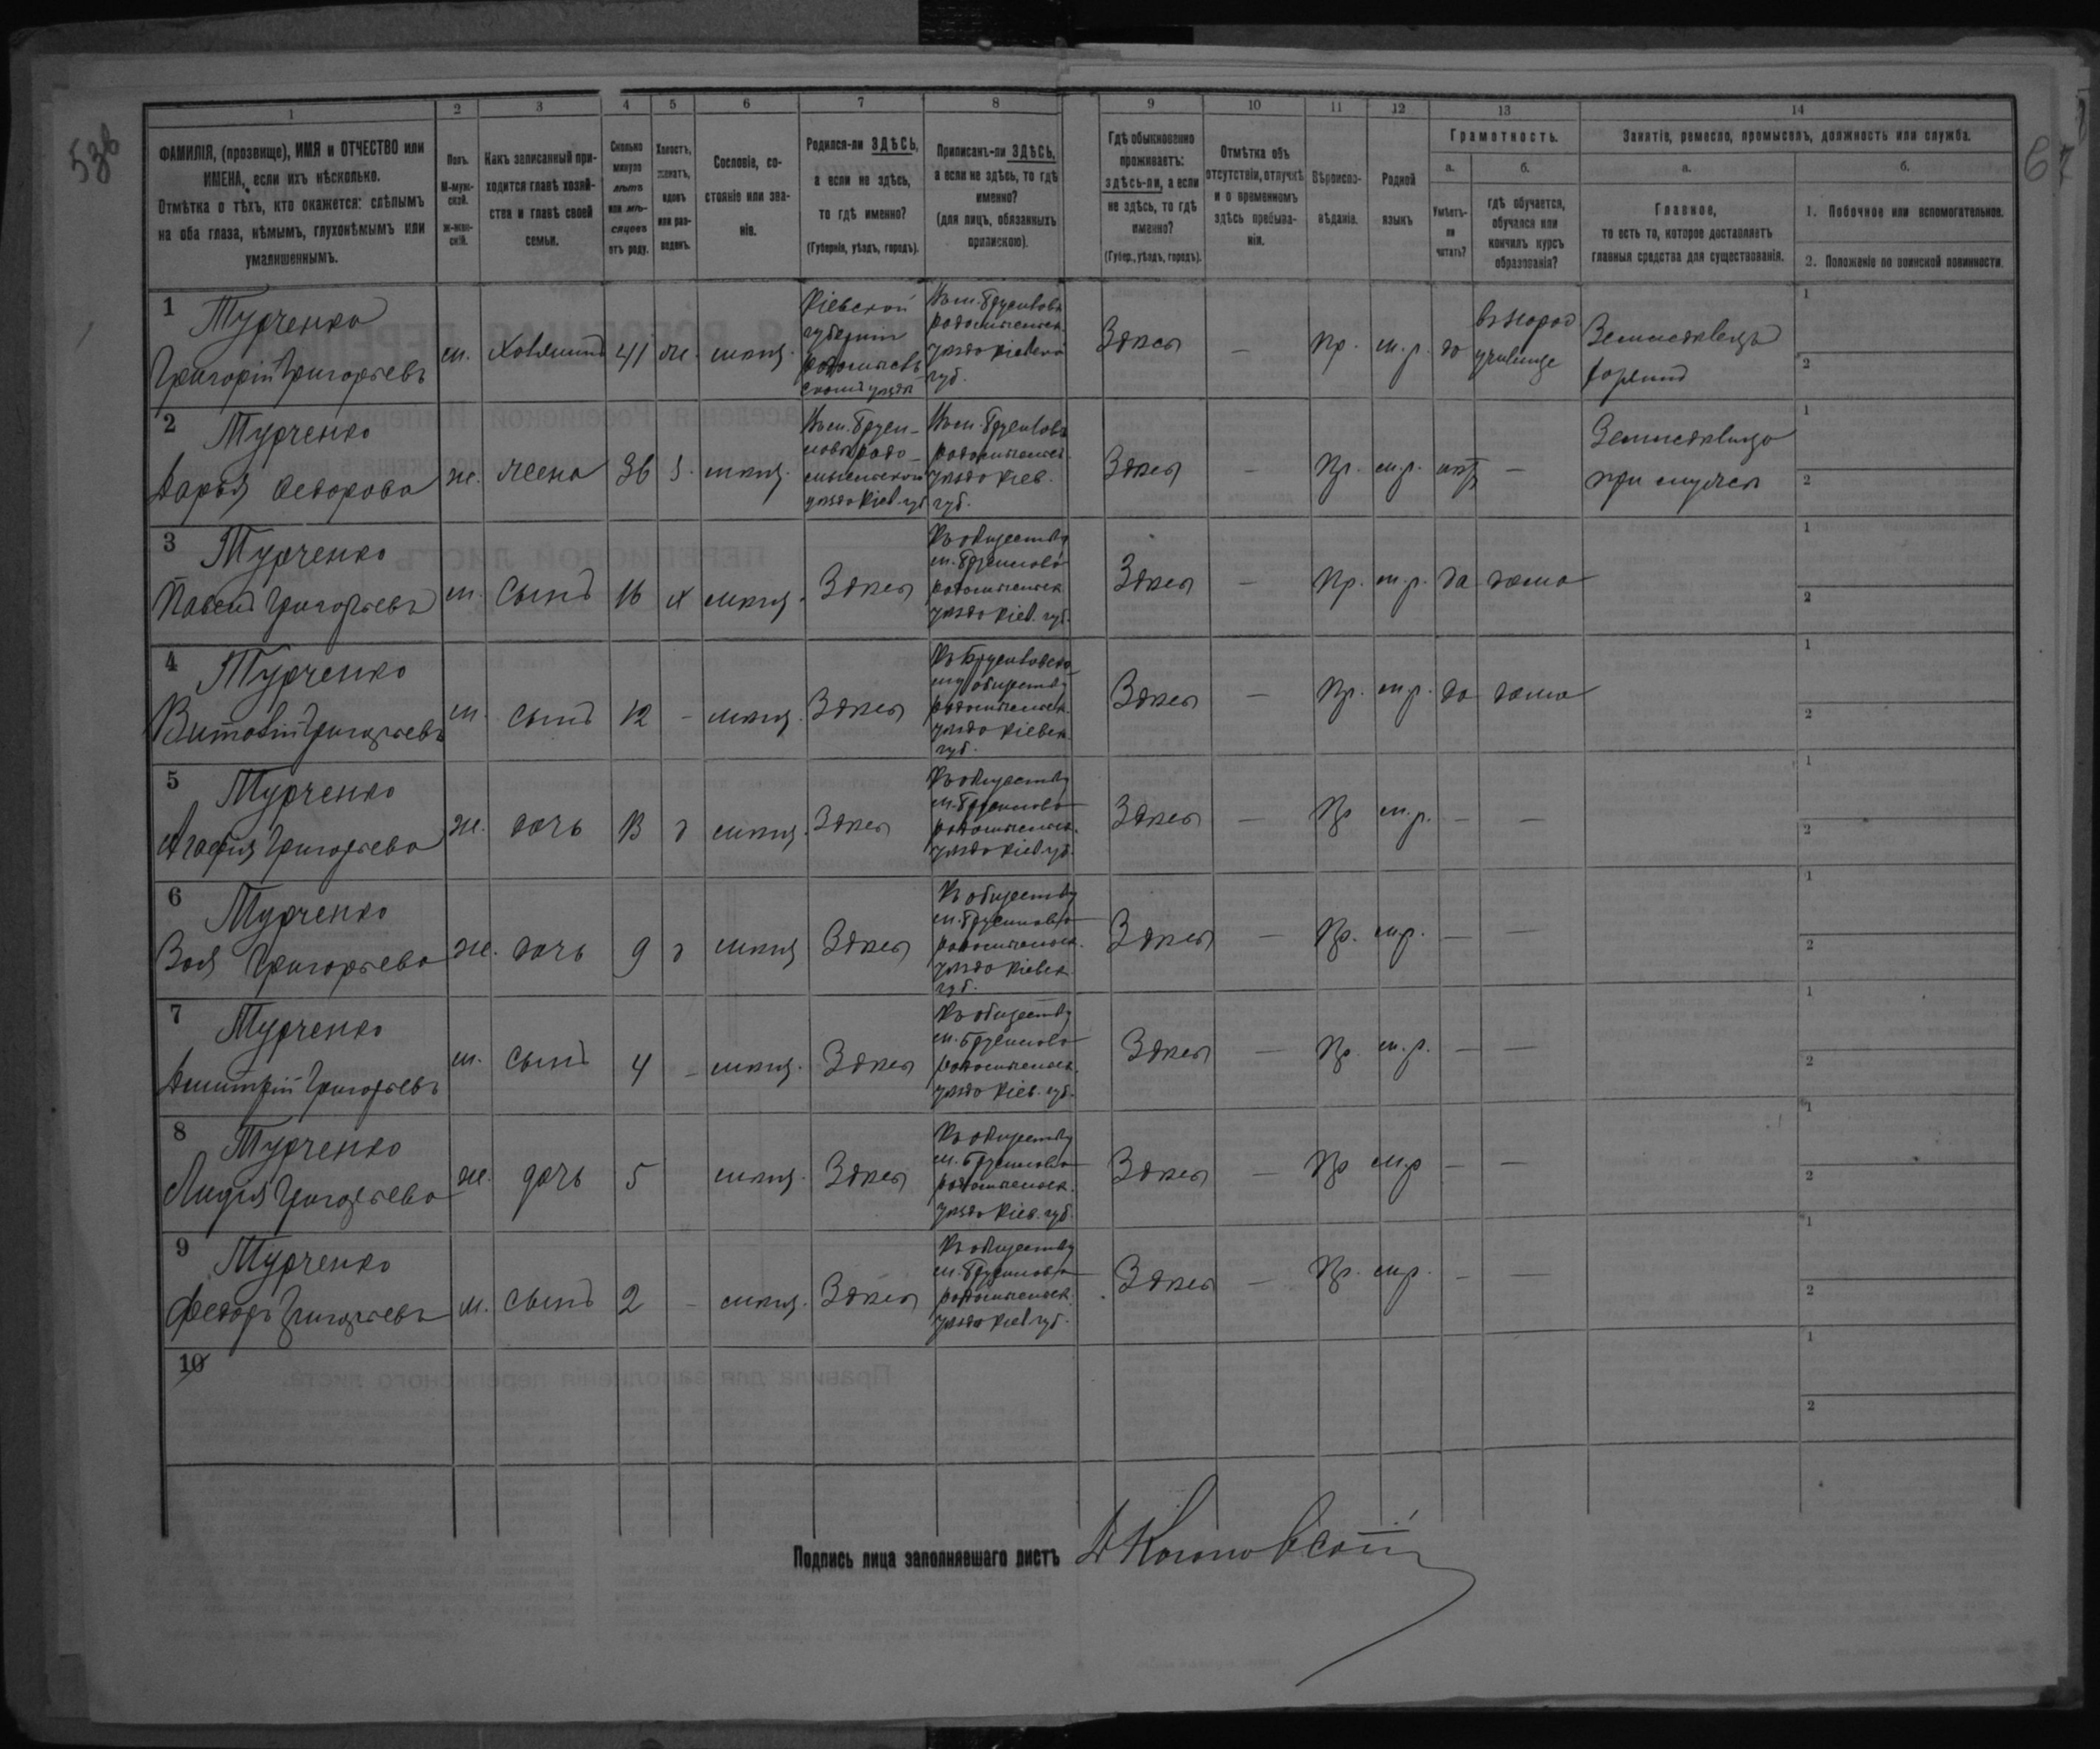 536
67
1 2 3 4 5 6 7 8 9 10 11 12 13 14
ФАМИЛІЯ, (прозвище), ИМЯ и ОТЧЕСТВО или
ИМЕНА, если ихъ нѣсколько.
Отмѣтка о тѣхъ, кто окажется: слѣпымъ
на оба глаза, нѣмымъ, глухонѣмымъ или
умалишеннымъ.
Полъ.
М-муж-
ской.
Ж-жен-
скій.
Какъ записанный при-
ходится главѣ хозяй-
ства и главѣ своей
семьи.
Сколько
минуло
лѣтъ
или мѣ-
сяцевъ
отъ роду.
Холостъ,
женатъ,
вдовъ
или раз-
веденъ.
Сословіе, со-
стояніе или зва-
ніе.
Родился-ли ЗДѢСЬ,
а если не здѣсь,
то гдѣ именно?
(Губернія, уѣздъ, городъ).
Приписанъ-ли ЗДѢСЬ,
а если не здѣсь, то гдѣ
именно?
(для лицъ, обязанныхъ
припискою).
Гдѣ обыкновенно
проживаетъ:
здѣсь-ли, а если
не здѣсь, то гдѣ
именно?
(Губер., уѣздъ, городъ).
Отмѣтка объ
отсутствіи, отлучкѣ
и о временномъ
здѣсь пребыва-
ніи.
Вѣроиспо-
вѣданіе.
Родной
языкъ
Грамотность.
а.
Умѣетъ-
ли
читать?
б.
гдѣ обучается,
обучался или
кончилъ курсъ
образованія?
Занятіе, ремесло, промыселъ, должность или служба.
а.
Главное,
то есть то, которое доставляетъ
главныя средства для существованія.
б.
1. Побочное или вспомогательное.
2. Положеніе по воинской повинности.
1 Турченко
Григорій Григорьевъ
м. Хозяинъ 41 ж. мѣщ.
Кіевской
губерніи
Радомысль
скомъ уѣздѣ
Къ м. Брусилову
радомысльск.
уѣзда Кіевской
губ.
Здѣсь — Пр. м.р. да
въ народ
училище
Земледѣлецъ
1
2
2 Турченко
Дарья Федорова
ж. жена 36 з. мѣщ.
радо-
мысльскаго
уѣзда Кіев. губ
Къ м. Брусилову
радомысльск.
уѣзда Кіев.
губ.
Здѣсь — Пр. м.р. нѣтъ —
Земледѣлица
при мужѣ
1
2
3 Турченко
Павелъ Григорьевъ
м. сынъ 16 х мѣщ. Здѣсь
Къ обществу
м. Брусилова
радомысльск
уѣзда Кіев. губ.
Здѣсь — Пр. м.р. да дома
1
2
4 Турченко
Григорьевъ
м. сынъ 12 - мѣщ. Здѣсь
Къ Брусиловско
му обществу
радомысльск.
уѣзда Кіевск
губ.
Здѣсь — Пр. м.р. да дома
1
2
5 Турченко
Агафия Григорьева
ж. дочь 13 д мѣщ. Здѣсь
Къ обществу
м. Брусилова
радомысльск.
уѣзда Кіев. губ.
Здѣсь — Пр м.р. — —
1
2
6 Турченко
Зоя Григорьева
ж. дочь 9 д мѣщ Здѣсь
Къ обществу
м. Брусилова
радомысльск.
уѣзда Кіевск
губ.
Здѣсь — Пр. м.р. — —
1
2
7 Турченко
Димитрій Григорьевъ
м. сынъ 4 - мѣщ. Здѣсь
Къ обществу
м. Брусилова
радомысльск.
уѣзда Кіев. губ.
Здѣсь — Пр. м.р. — —
1
2
8 Турченко
Лидия Григорьева
ж. дочь 5 мѣщ. Здѣсь
Къ обществу
м. Брусилова
радомысльск.
уѣзда Кіев. губ.
Здѣсь — Пр м.р — —
1
2
9 Турченко
Федоръ Григорьевъ
м. сынъ 2 - мѣщ. Здѣсь
Къ обществу
м. Брусилова
радомысльск.
уѣзда Кіев губ.
Здѣсь — Пр. м.р. — —
1
2
10
1
2
Подпись лица заполнявшаго листъ